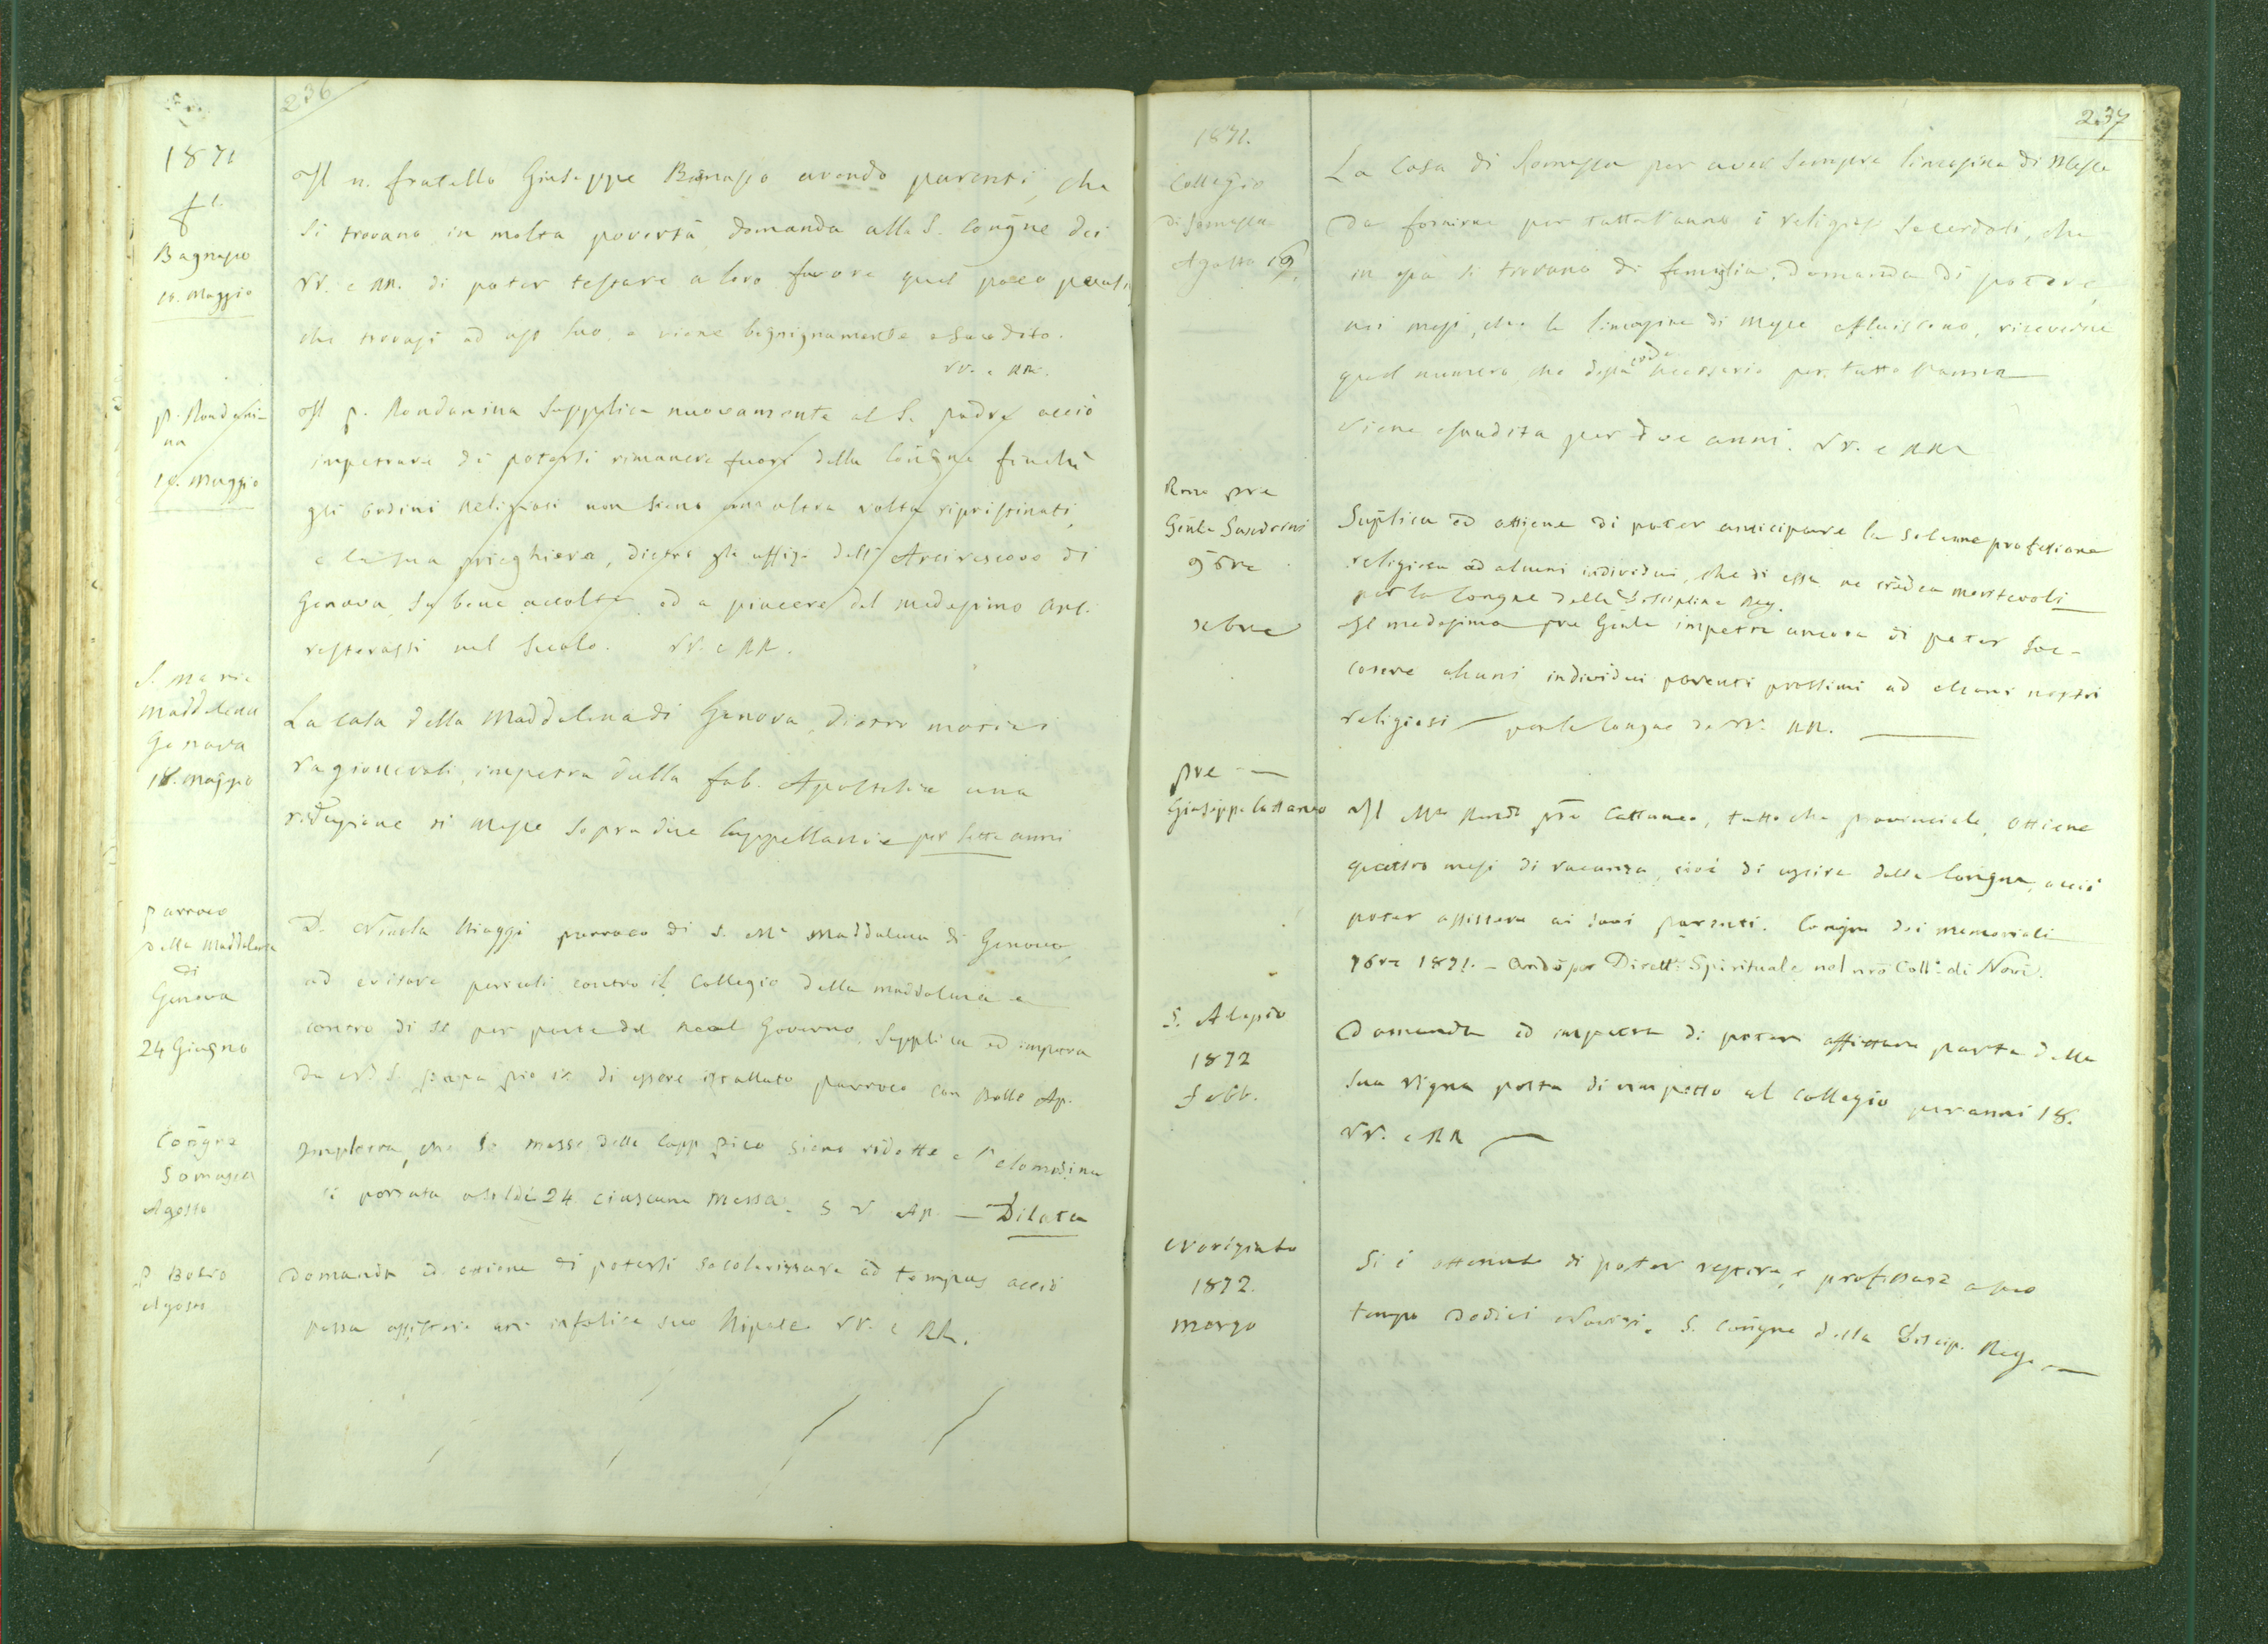 236
1871
fr.
Bagnasco
18. Maggio
Il n. fratello Giuseppe Bagnasco avendo parenti, che
si trovano in molta povertà, domanda alla S. Congñe dei
VV. e RR. di poter testare a loro favore quel poco
che trovasi ad uso suo, e viene esaudito.
VV. e RR.
p. Rondani-
na
18. Maggio
Il p. Rondanina supplica nuovamente al S. padre acciò
impetrare di potersi rimanere fuori della Congñe finchè
gli ordini Religiosi non siano una altra volta ripristinati,
e la sua prieghiera, dietro gli uffizi dell'Arcivescovo di
Genova, fu bene accolta, ed a piacere del medesimo Arc.
resterassi nel secolo. VV. e RR.
S. Maria
Maddalena
Genova
18. Maggio
La Casa della Maddalena di Genova, dietro motivi
ragionevoli, impetra dalla fab. Apostolica una
riduzione di Messe sopra due Cappellanie per sette anni
parroco
della Maddalena
di
Genova
24 Giugno
D. Nicola Biaggi parroco di S. Ma Maddalena di Genova,
ad evitare pericoli contro il Collegio della Maddalena e
contro di se per parte del Real Governo, supplica ed impetra
da N. S. papa pio IX di essere istallato parroco con Bolle Ap.
Congñe
Somasca
Agosto
Implora, che le messe della Capp. Pico siano ridotte e l'elemosina
si portata a soldi 24 ciascuna messa. S. V. Ap. — Dilata
P Bosio
Agosto
Domanda ed ottiene di potersi secolarizzare ad tempus acciò
possa assistere un infelice suo Nipote VV. e RR.
237
1871.
Collegio
di Somasca
Agosto 19.
La Casa di Somasca per aver sempre limosina di Messe
da fornirne per tutto l'anno i religiosi sacerdoti, che
in essa si trovano di famiglia, domanda di potere,
nei mesi, che le limosine di Messe affluiscono, riceverne
quel numero, che dessa crede necessario per tutto l'anno
Viene esaudita per due anni. VV. e RR
Rmo pre
Genle Sandrini
9bre
Suplica ed ottiene di poter anticipare la solenne professione
religiosa ad alcuni individui, che di essa ne credea meritevoli
per la Congne della Disciplina Reg.
Xbre
Il medesimo pre Genle impetra ancora di poter soc-
correre alcuni individui parenti prossimi ad alcuni nostri
religiosi — per la Congne de VV. RR.
pre —
Giuseppe Cattaneo
Il Mto Revdo pre Cattaneo, tutto che provinciale, ottiene
quattro mesi di vacanza, cioè di uscire dalla Congne, acciò
poter assistere ai suoi parenti. Congne dei memoriali
9bre 1871. — Andò per Dirett.e Spirituale nel nro Coll.o di Novi.
S. Alessio
1872
Febb.
Domanda ed impetra di poter affittare parte della
sua vigna posta di rimpetto al Collegio per anni 18.
VV. e RR —
Noviziato
1872.
Marzo
Si è ottenuto di poter vestire, e professare a suo
tempo dodici Novizi. S. Congñe della Discip. Reg. —